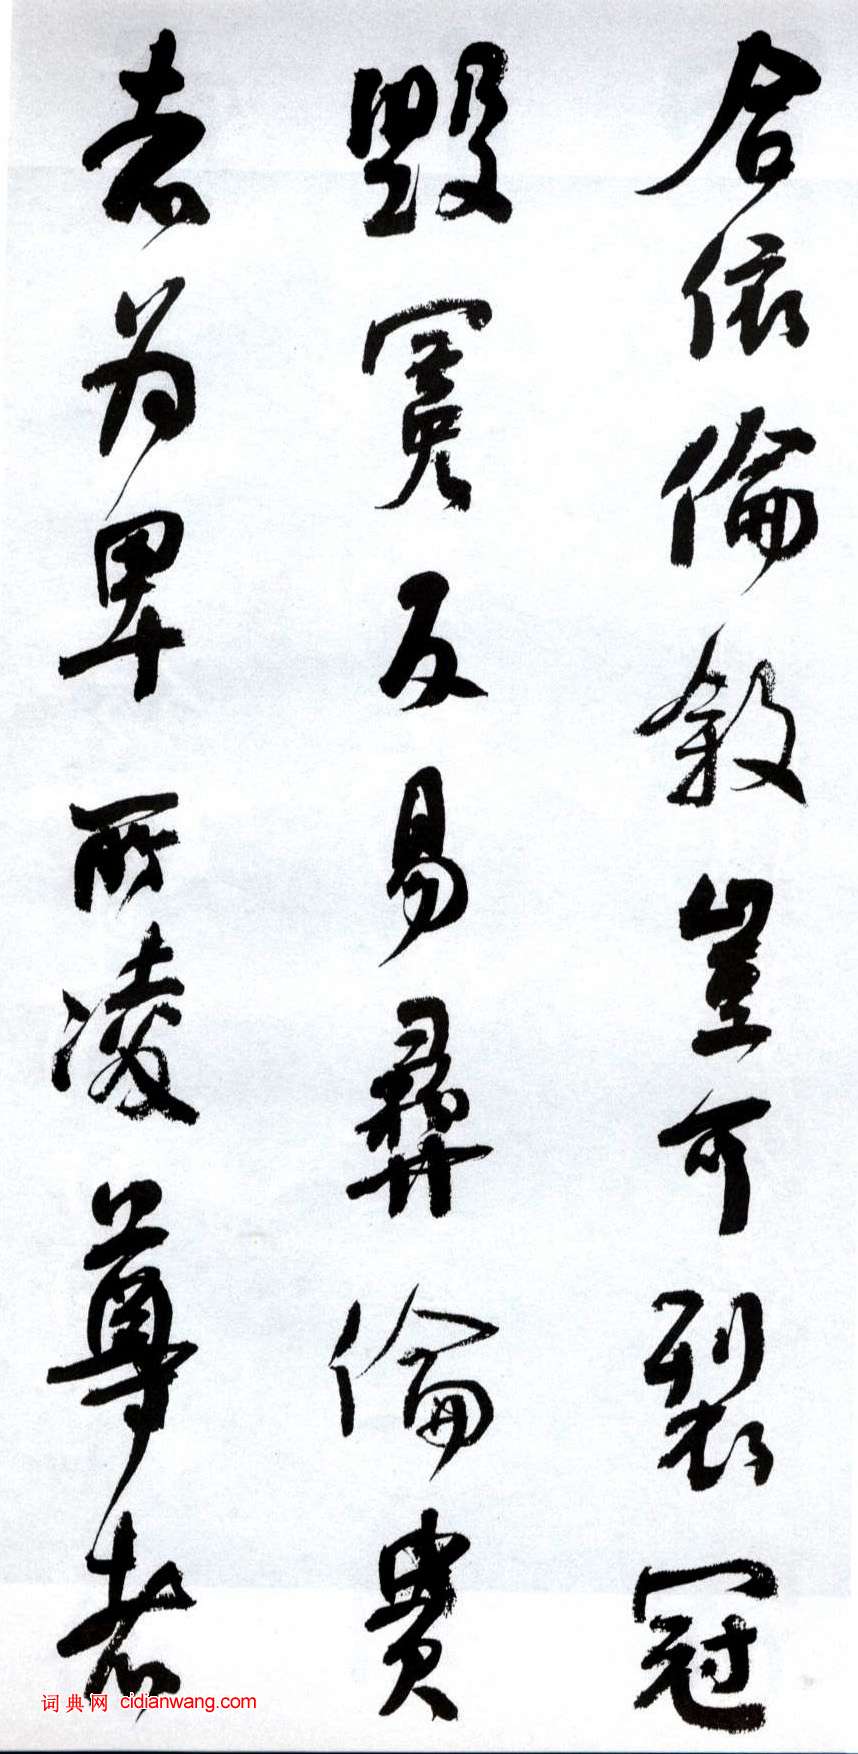 合依倫敘豈可裂冠
毀冕反易彝倫貴
者為卑所凌尊者
词典网 cidianwang.com